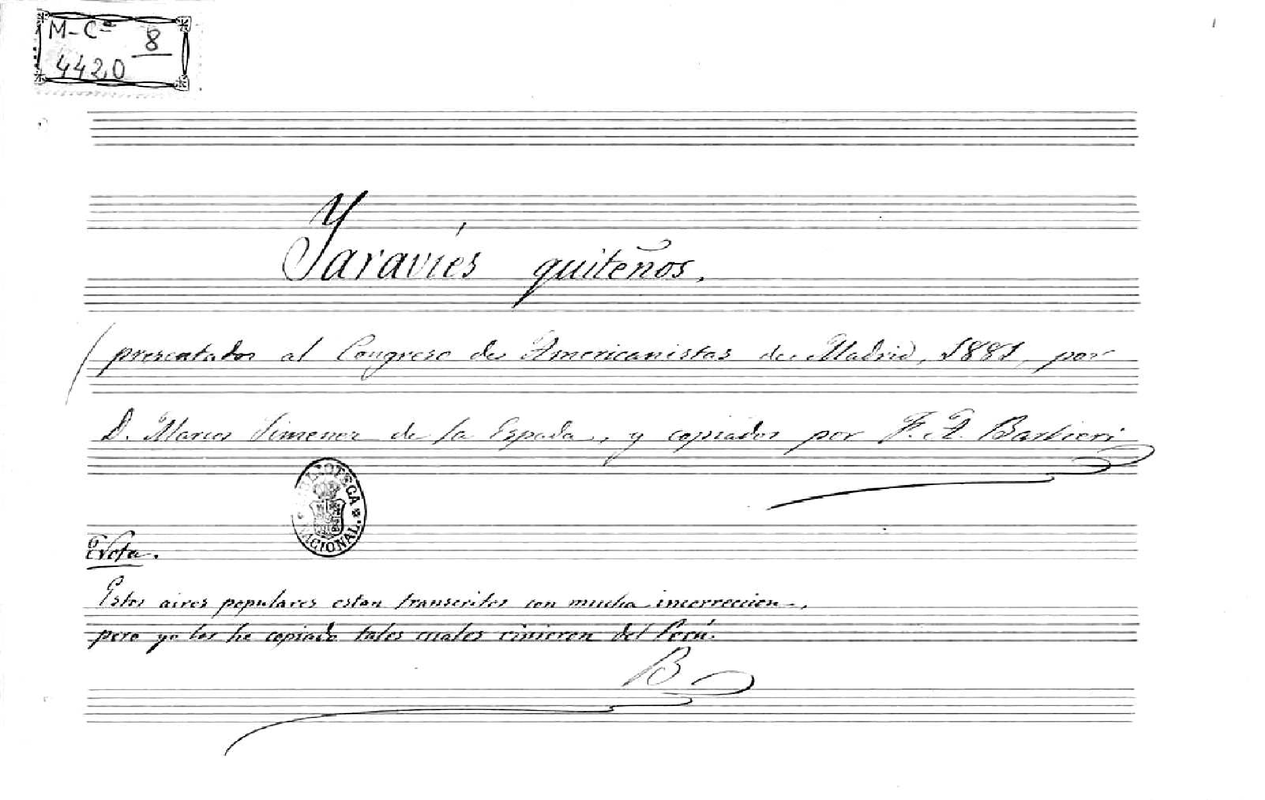 M-Cª 8
4420
Yaravíes quiteños,
(presentados al Congreso de Americanistas de Madrid, 1881, por
D. Marcos Jimenez de la Espada, y copiados por F. A. Barbieri
BIBLIOTECA NACIONAL
Nota.
Estos aires populares estan transcritos con mucha incorreccion,
pero yo los he copiado tales cuales vinieron del Perú.
B